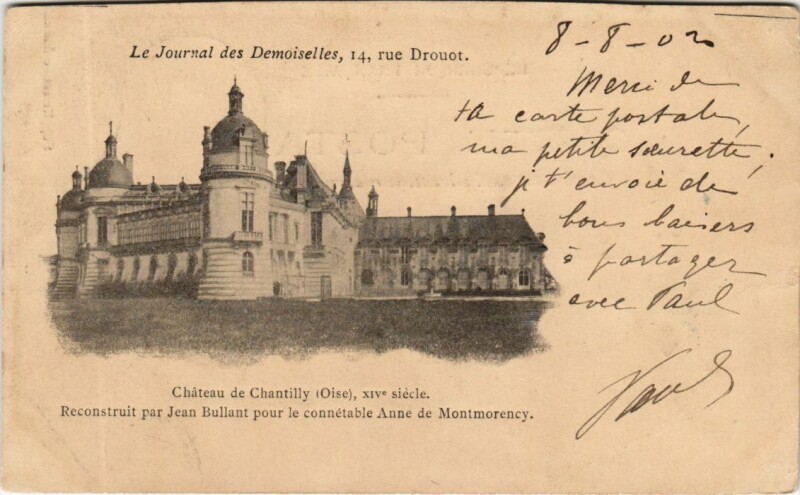 Le Journal des Demoiselles, 14, rue Drouot.
8-8-02
Merci de
ta carte postale,
ma petite sœurette,
j t'envoie de
bons baisers
à partager
avec Paul
Château de Chantilly (Oise), XIVe siècle.
Reconstruit par Jean Bullant pour le connétable Anne de Montmorency.